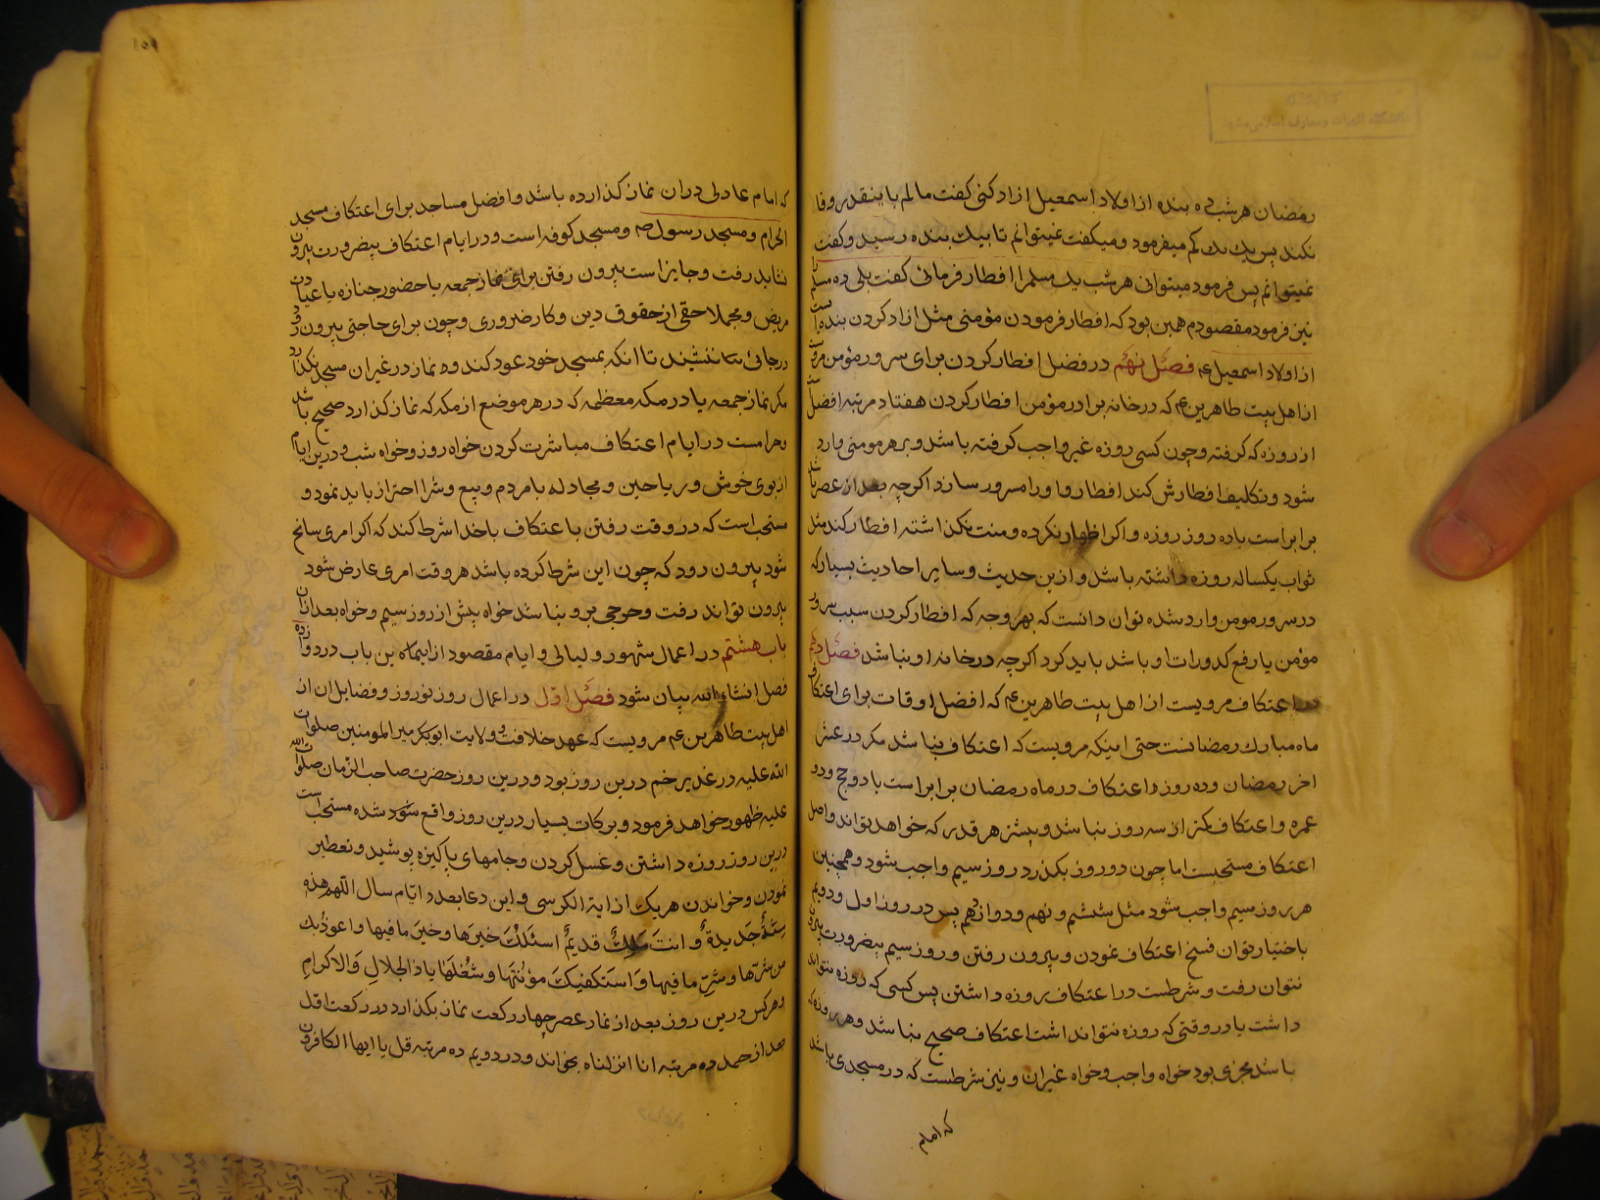 رمضان هر شب ده بنده از اولاد اسمعیل ازاد کنی کفت مالم باینقدر وفا
نکند پس یك یك کم میفرمود و میکفت نمیتوانم تا بیك بنده رسید و کفت
نمیتوانم پس فرمود میتوانی هر شب یك مسلم را افطار فرمائی کفت بلی ده مسلم را
نیز فرمود مقصودم همین بود که افطار فرمودن مؤمنی مثل ازاد کردن بنده است
از اولاد اسمعیل ع فصل نهم در فضل افطار کردن برای سرور مؤمن مرویست
از اهل بیت طاهرین ع که در خانه برادر مؤمن افطار کردن هفتاد مرتبه افضل است
از روزه که کرفته و چون کسی روزه غیر واجب کرفته باشد و بر هر مومنی وارد
شود و تکلیف افطارش کند افطار و او را مسرور سازد اکرچه بعد از عصر باشد
برابر است با ده روز روزه و اکر اظهار نکرده و منت نکذاشته افطار کند مثل
ثواب یکساله روزه داشته باشد و ازین حدیث و سایر احادیث بسیار که
در سرور مومن وارد شده توان دانست که بهر وجه که افطار کردن سبب سرور
مؤمن یا رفع کدورات او باشد باید کرد اکرچه در خانه او نباشد فصل دهم
در اعتکاف مرویست از اهل بیت طاهرین ع که افضل اوقات برای اعتکاف
ماه مبارك رمضانست حتی اینکه مرویست که اعتکاف نباشد مکر در عشر
اخر رمضان و ده روز اعتکاف در ماه رمضان برابر است با دو حج و دو
عمره و اعتکاف کمتر از سه روز نباشد و بیشتر هر قدر که خواهد تواند و اصل
اعتکاف مستحبست اما چون دو روز بکذرد روز سیم واجب شود و همچنین
هر روز سیم واجب شود مثل ششم و نهم و دوازدهم پس در روز اول و دویم
باختیار توان فسخ اعتکاف نمودن و بیرون رفتن و روز سیم بیضرورت بیرون
نتوان رفت و شرطست در اعتکاف روزه داشتن پس کسی که روزه نتواند
داشت یا در وقتی که روزه نتواند داشت اعتکاف صحیح نباشد و هر روزه که
باشد مجزی بود خواه واجب و خواه غیر ان و نیز شرطست که در مسجدی باشد
که امام
١٥٩
که امام عادلی در ان نماز کذارده باشد و افضل مساجد برای اعتکاف مسجد
الحرام و مسجد رسول ص و مسجد کوفه است و در ایام اعتکاف بیضرورت بیرون
نباید رفت و جایز است بیرون رفتن برای نماز جمعه یا حضور جنازه یا عیادت
مریض و مجملا حقی از حقوق دین و کار ضروری و چون برای حاجتی بیرون رود
در جائی ننشیند تا انکه بمسجد خود عود کند و نماز در غیر ان مسجد نکذارد
مکر نماز جمعه یا در مکه معظمه که در هر موضع از مکه که نماز کذارد صحیح باشد
و حرامست در ایام اعتکاف مباشرت کردن خواه روز و خواه شب و درین ایام
از بوی خوش و ریاحین و مجادله با مردم و بیع و شرا احتراز باید نمود و
مستحبست که در وقت رفتن باعتکاف با خدا شرط کند که اکر امری سانح
شود بیرون رود که چون این شرط کرده باشد هر وقت امری عارض شود
بیرون تواند رفت و حرجی بر و نباشد خواه پیش از روز سیم و خواه بعد از ان
باب هشتم در اعمال شهور و لیالی و ایام مقصود از این باب در دوازده
فصل انشاء الله بیان شود فصل اول در اعمال روز نوروز و فضایل ان از
اهل بیت طاهرین ع مرویست که عهد خلافت و ولایت امیر المومنین صلوات
الله علیه در غدیر خم درین روز بود و درین روز حضرت صاحب الزمان صلوات الله
علیه ظهور خواهد فرمود و برکات بسیار درین روز واقع شده مستحبست
درین روز روزه داشتن و غسل کردن و جامهای پاکیزه پوشیدن و تعطیر
نمودن و خواندن هر یك از ایة الکرسی و این دعا بعدد ایام سال اللهم هذه
سَنَةٌ جَدیدةٌ و انتَ مَلِكٌ قدیمٌ اسئَلُكَ خیرَها و خیرَ ما فیها و اعوذُ بك
من شرّها و شرِّ ما فیها وَ اَستَکفیكَ مؤنَتَها و شُغلَها یا ذا الجلالِ وَ الاکرامِ
و هرکس درین روز بعد از نماز عصر چهار رکعت نماز بکذارد در رکعت اول
بعد از حمد ده مرتبه انا انزلناه بخواند و در دویم ده مرتبه قل یا ایها الکافرون